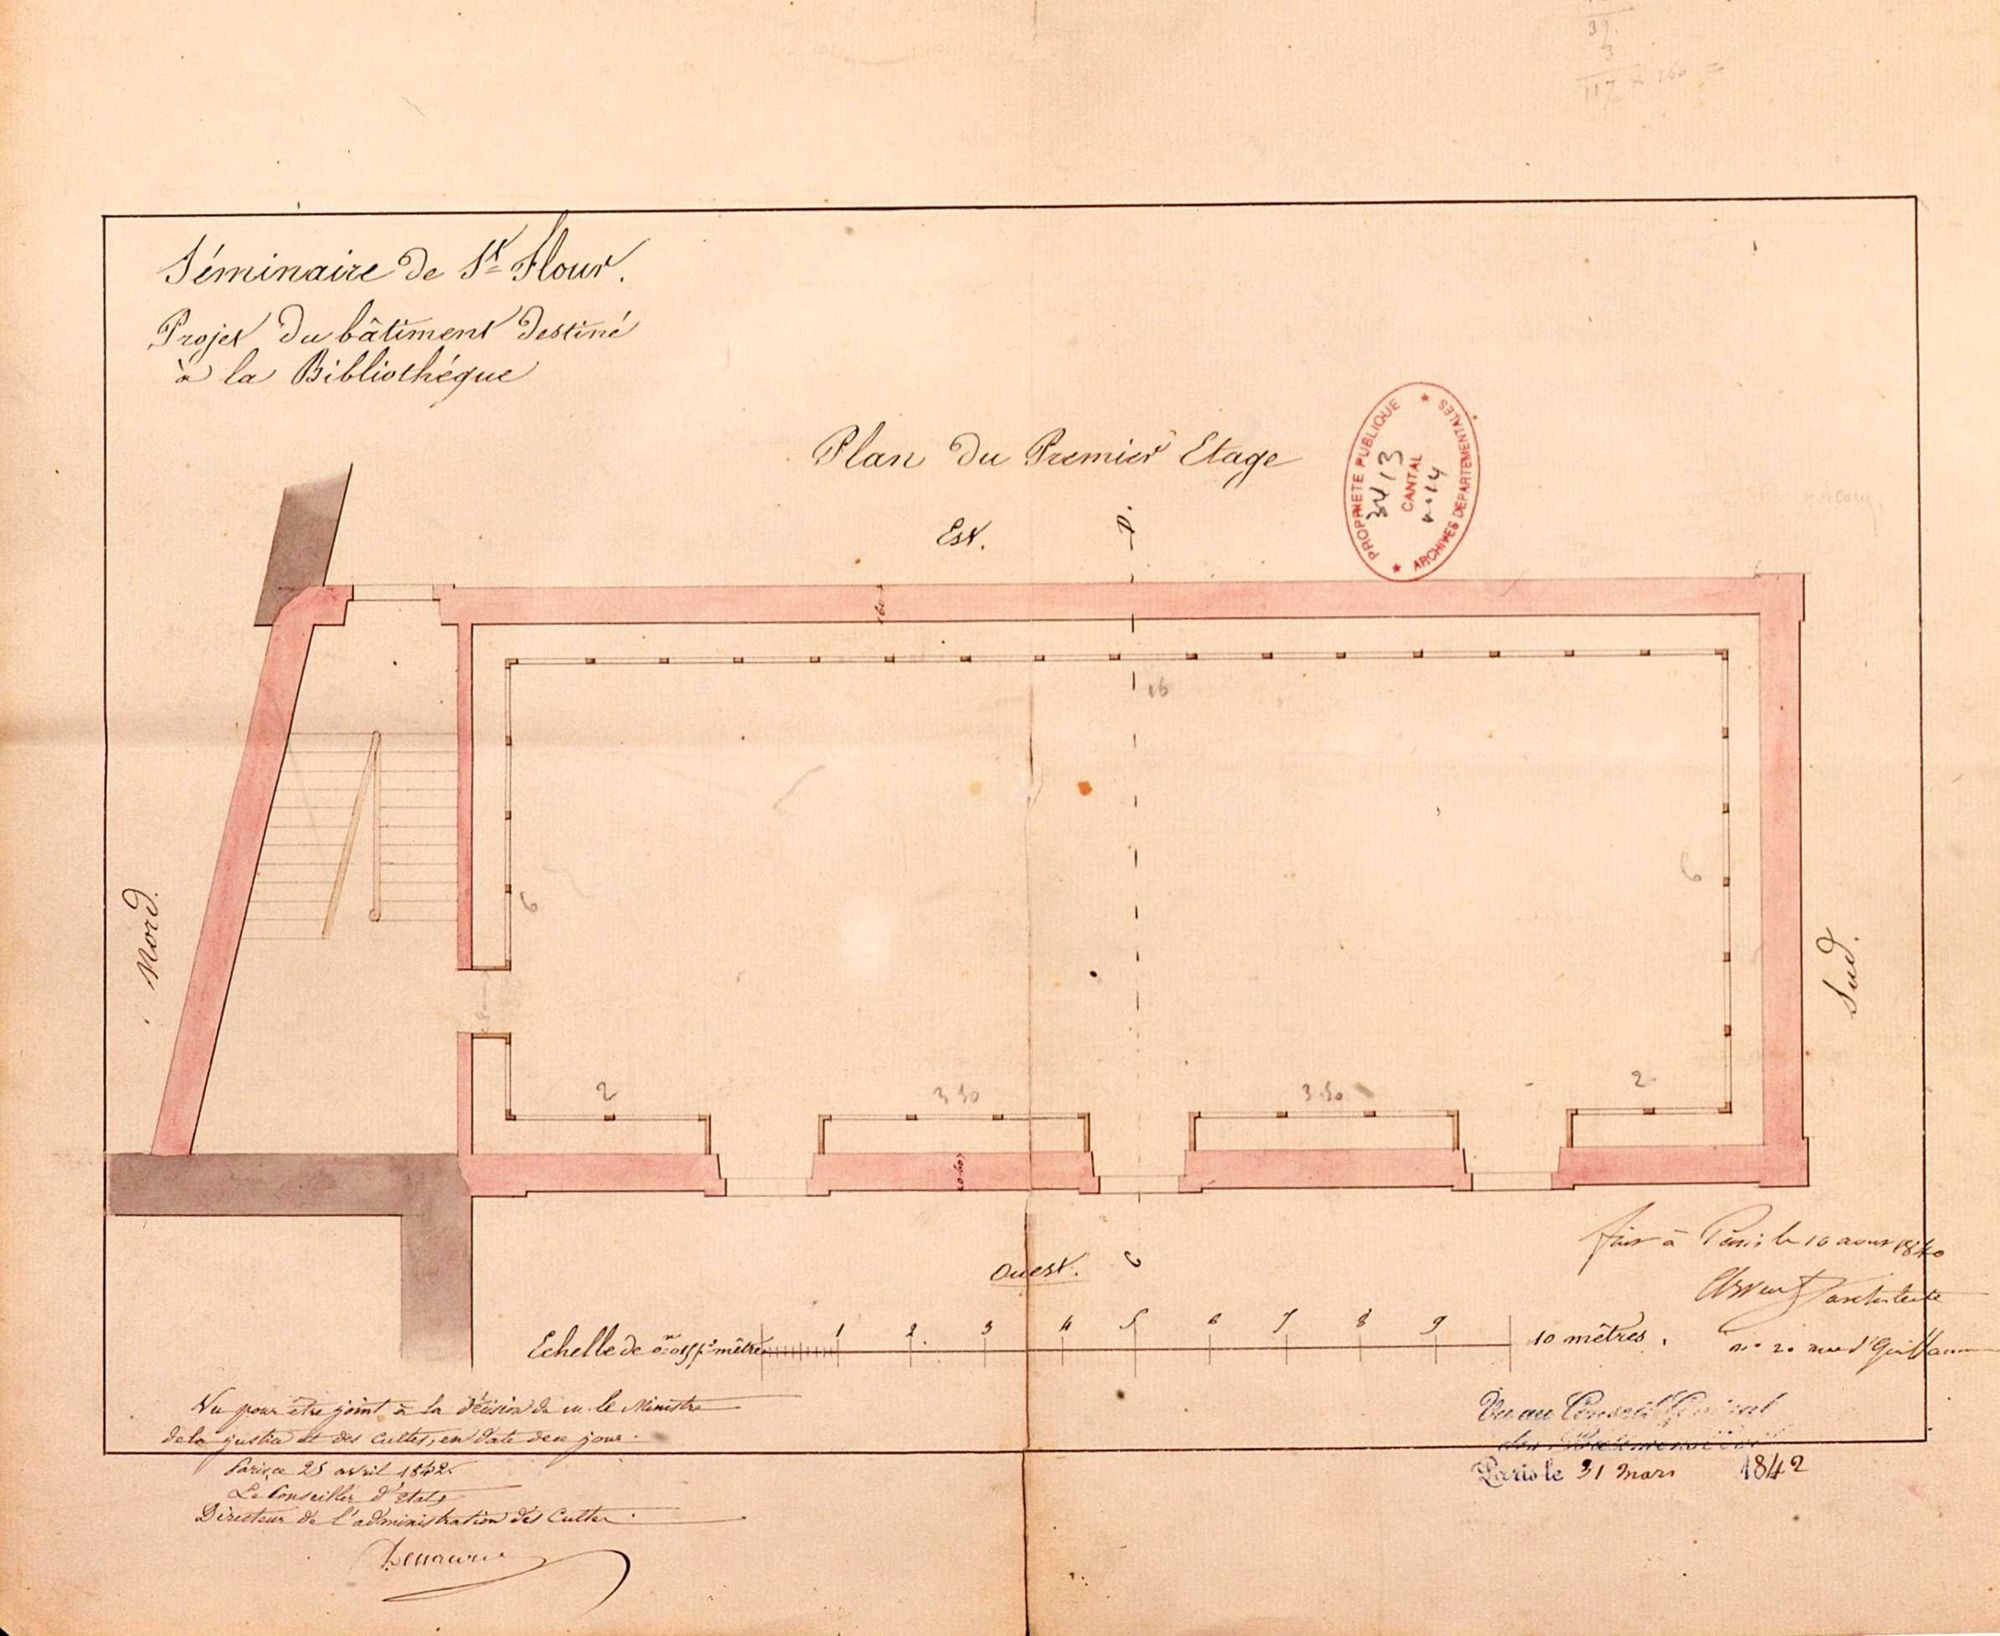 39.
3
117 × 160 =
Séminaire de St Flour.
Projet du bâtiment destiné
à la Bibliothéque
Plan du Premier Etage
PROPRIETE PUBLIQUE
CANTAL
ARCHIVES DEPARTEMENTALES
Est.
D.
60
16
Nord.
6
6
Sud.
2
3.50
3.50
2
0.60
Ouest.
C
1 2 3 4 5 6 7 8 9
Echelle de
mètre
10 mètres.
fait à Paris le 10 aout 1840
architecte
Vu pour être joint à la décision de m. le Ministre
de la justice et des cultes, en date de ce jour.
Paris, ce 25 avril 1842.
Le Conseiller d'état,
Directeur de l'administration des Cultes.
Vu au Conseil Général
des Bâtiments Civils
Paris le 31 mars 1842